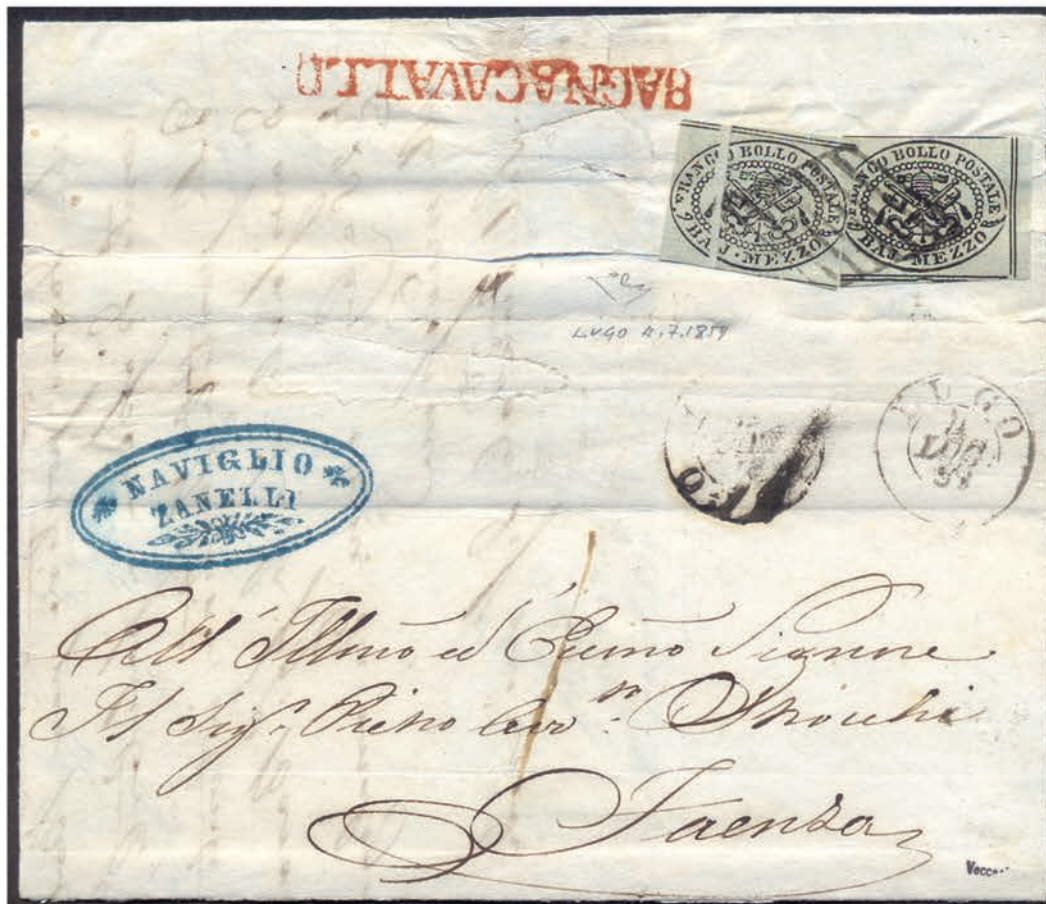 BAGNACAVALLO
FRANCO BOLLO POSTALE
BAJ. MEZZO
FRANCO BOLLO POSTALE
BAJ. MEZZO
LUGO 11.7.1859
LUGO
11
LUG
59
NAVIGLIO
ZANELLI
All' Illmo ed Ecc̃mo Signore
Il Sigr Pietro Strocchi
Faenza